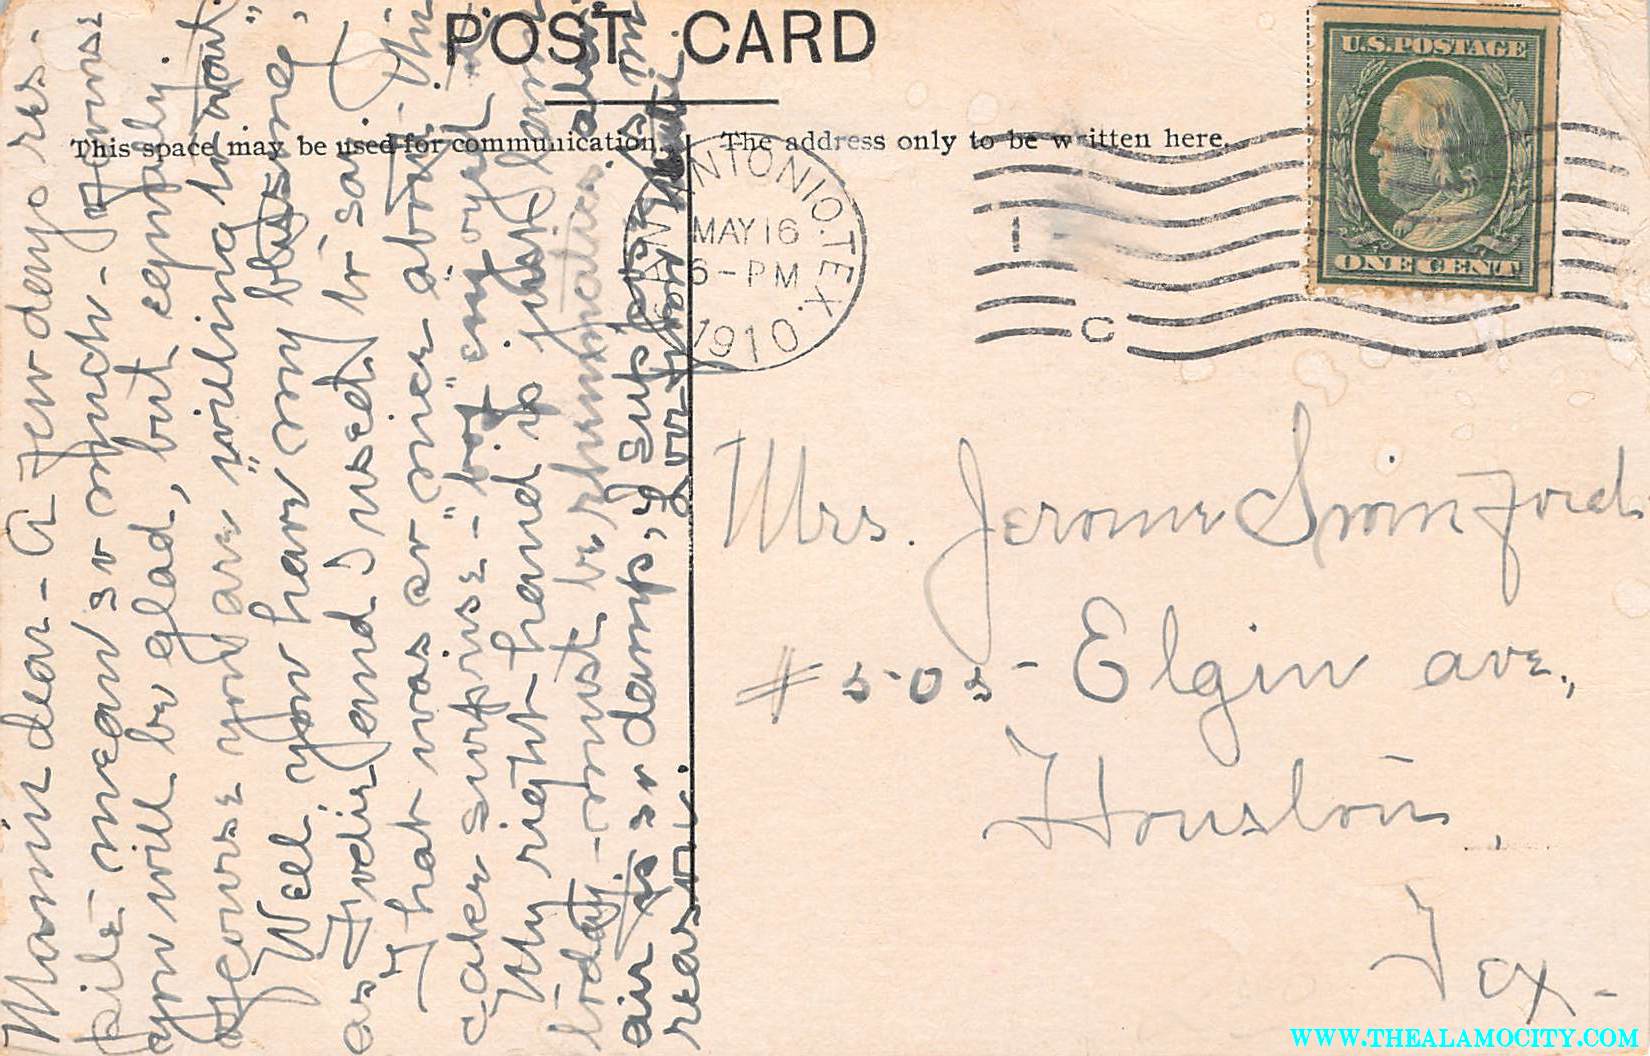 POST CARD
This space may be used for communication.
The address only to be written here.
U.S. POSTAGE
ONE CENT
SAN ANTONIO. TEX.
MAY 16
6-PM
1910
1
C
Mamie dear - A few days res-
pite means so much - Yours
you will be glad, but equally
yours you are "willing to wait."
Well you have my blessing,"
as Fredie and I used to say.
That was so nice about the
cake surprise - "big" enjoyed it
My right hand is just lame
today. - must be rheumatics. 
air is so damp, I suppose is
reason.
Mrs. Jerome Swinford
# 505- Elgin ave.,
Houston,
Tex-
WWW.THEALAMOCITY.COM